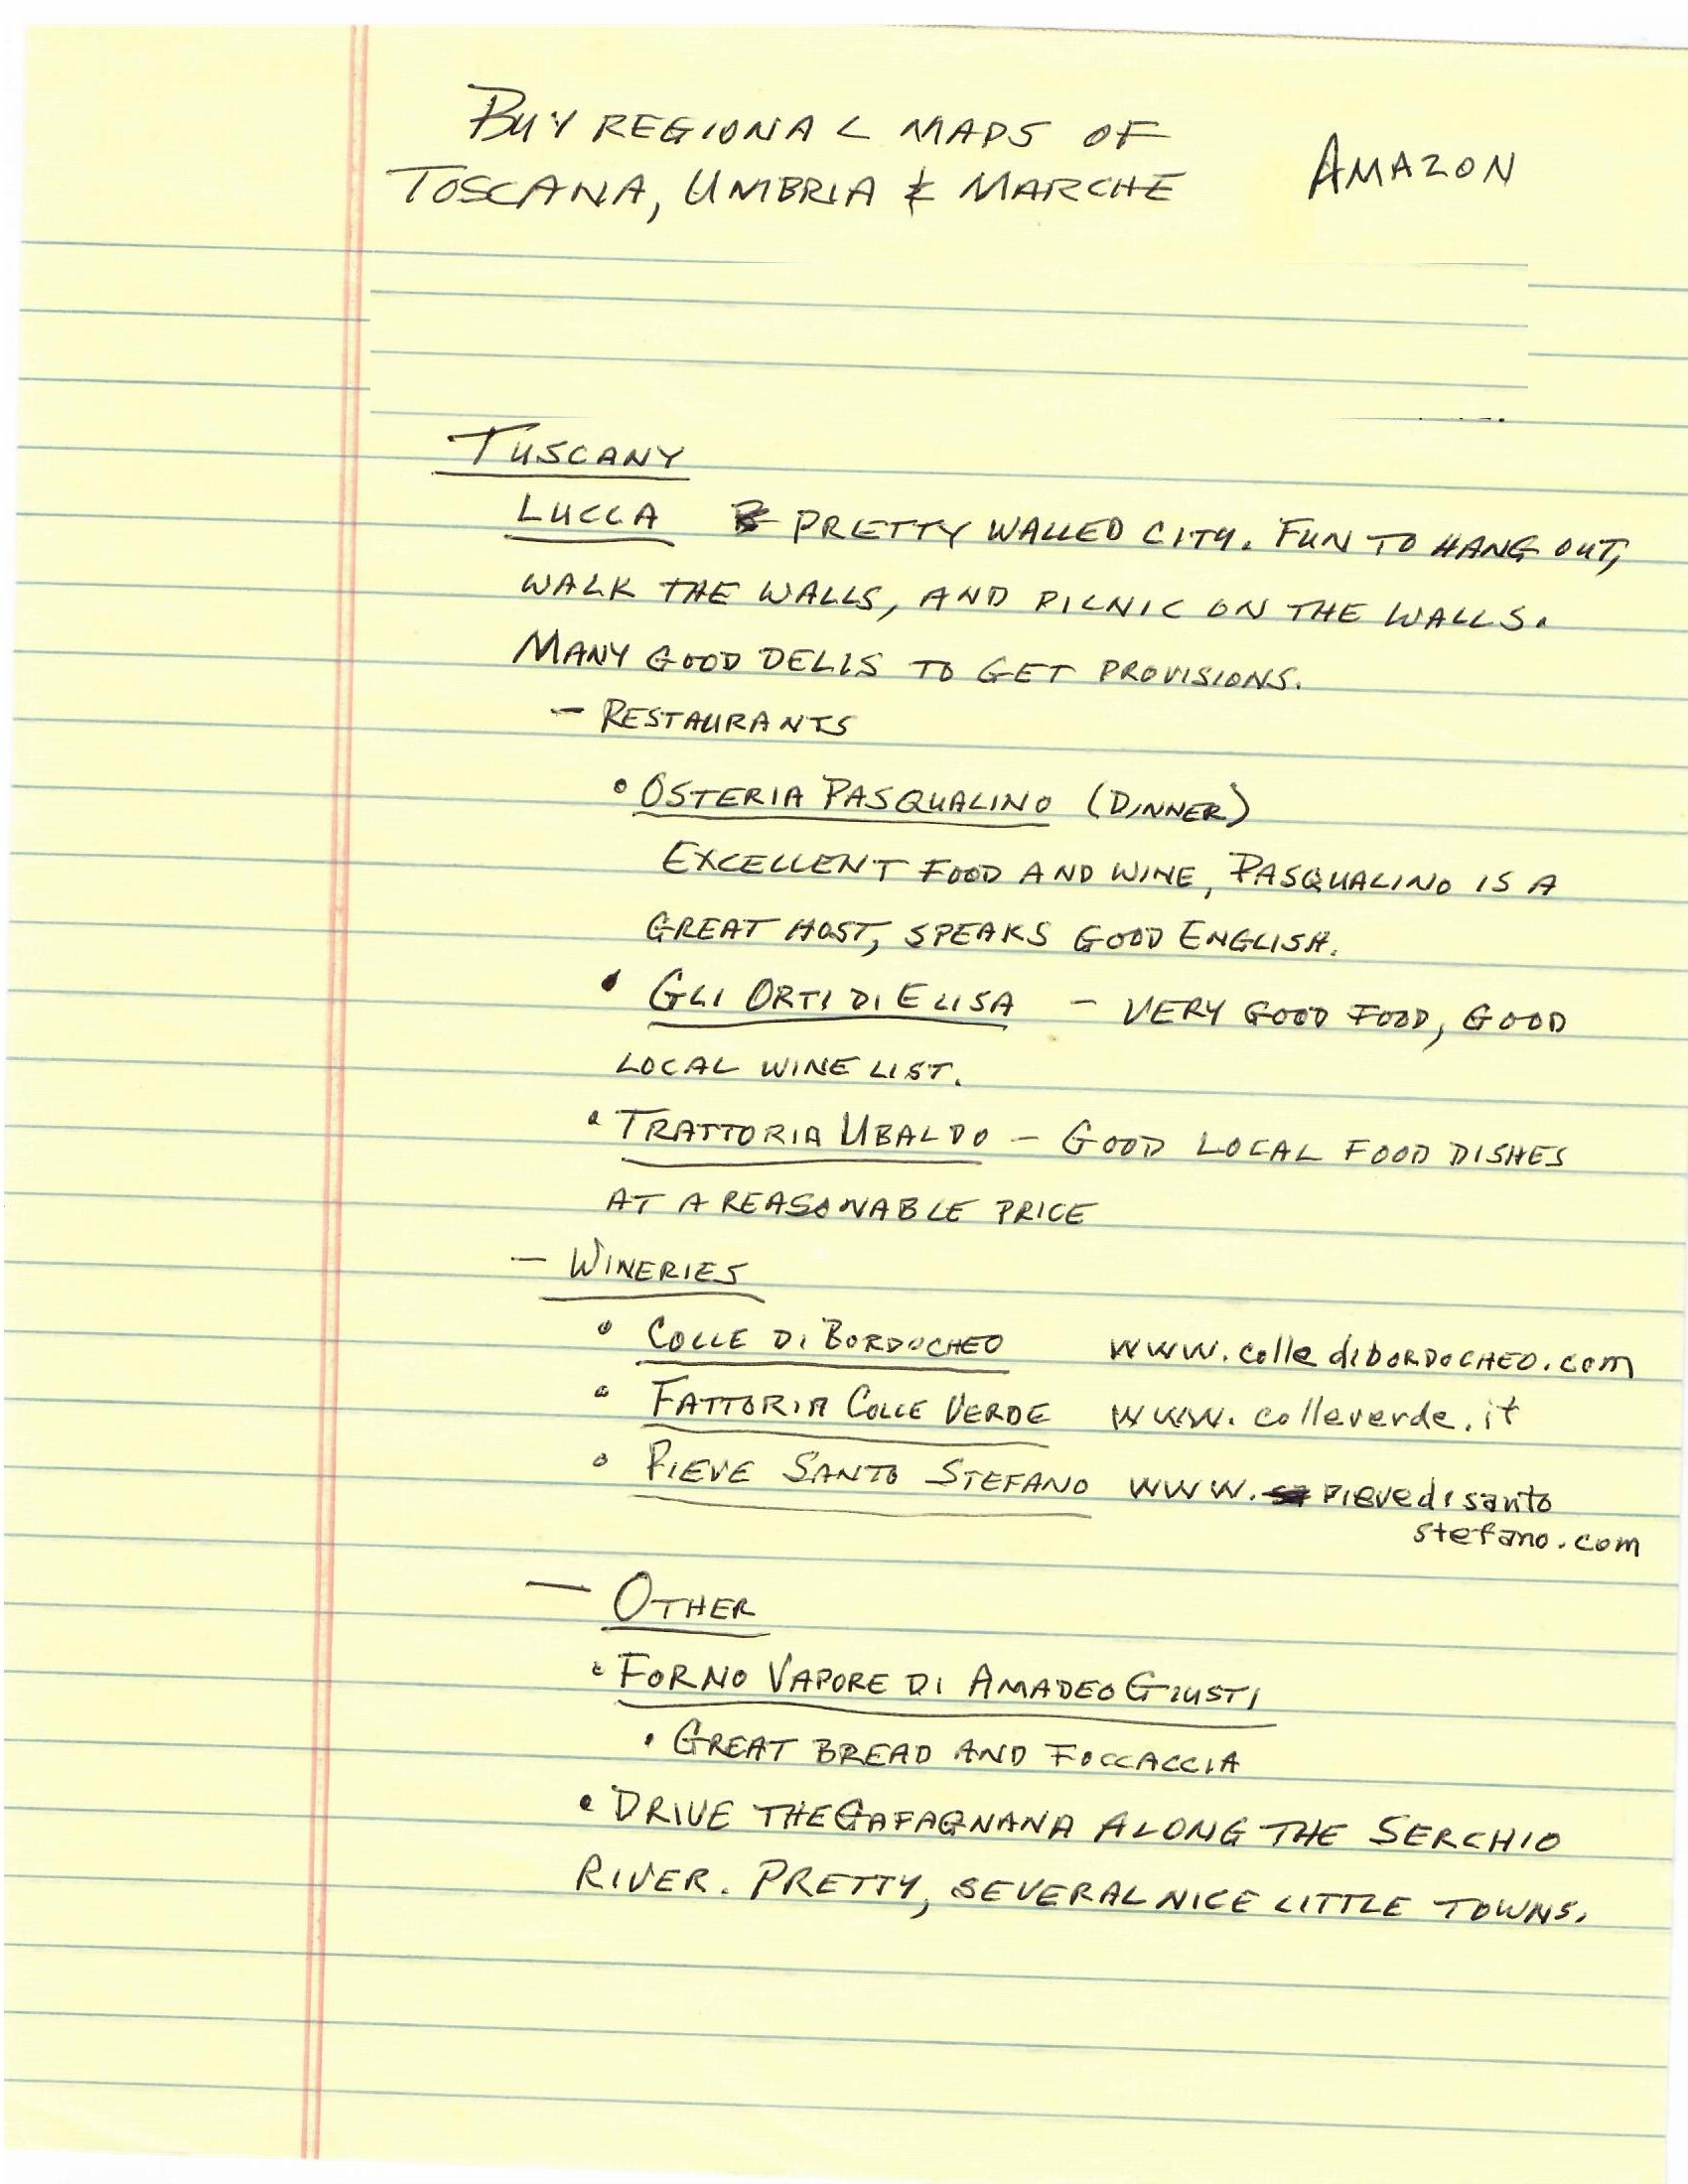 BUY REGIONAL MAPS OF
TOSCANA, UMBRIA & MARCHE AMAZON
TUSCANY
LUCCA PRETTY WALLED CITY. FUN TO HANG OUT,
WALK THE WALLS, AND PICNIC ON THE WALLS.
MANY GOOD DELIS TO GET PROVISIONS.
– RESTAURANTS
• OSTERIA PASQUALINO (DINNER)
EXCELLENT FOOD AND WINE, PASQUALINO IS A
GREAT HOST, SPEAKS GOOD ENGLISH.
• GLI ORTI DI ELISA – VERY GOOD FOOD, GOOD
LOCAL WINE LIST.
• TRATTORIA UBALDO – GOOD LOCAL FOOD DISHES
AT A REASONABLE PRICE
– WINERIES
• COLLE DI BORDOCHEO www.colledibORDOCHEO.com
• FATTORIA COLLE VERDE www.colleverde.it
• PIEVE SANTO STEFANO www.Pievedisanto
stefano.com
– OTHER
• FORNO VAPORE DI AMADEO GIUSTI
• GREAT BREAD AND FOCCACCIA
• DRIVE THE GAFAGNANA ALONG THE SERCHIO
RIVER. PRETTY, SEVERAL NICE LITTLE TOWNS.